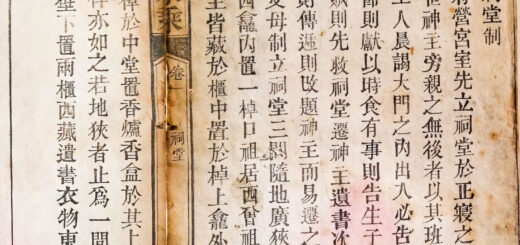 堂制
營宮室先立祠堂於正寢之
世神主旁親之無後者以其班
主人晨謁大門之內出入必告
節則獻以時食有事則告生子
賊則先救祠堂遷神主遺書次
則傳遞則改題神主而易遷之
母制立祠堂三間隨地廣狹
西龕內置一棹口祖居西曾祖
主皆藏於櫃中置於棹上龕外
乘 卷一 祠堂
棹於中堂置香爐香盒於其上
棹亦如之若地狹者止為一間
壁下置兩櫃西藏遺書衣物東